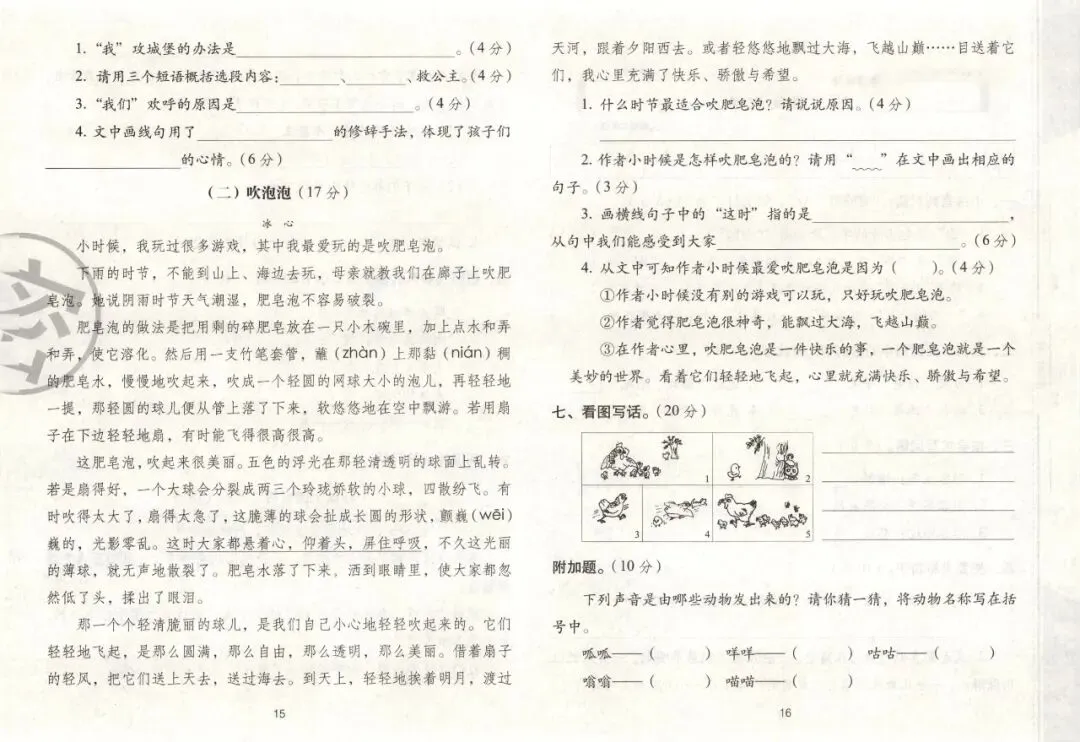 1. “我”攻城堡的办法是____________。(4分)
2. 请用三个短语概括选段内容:______、______、救公主。(4分)
3. “我们”欢呼的原因是____________。(4分)
4. 文中画线句用了____________的修辞手法，体现了孩子们
____________的心情。(6分)
(二) 吹泡泡(17分)
冰 心
小时候，我玩过很多游戏，其中我最爱玩的是吹肥皂泡。
下雨的时节，不能到山上、海边去玩，母亲就教我们在廊子上吹肥
皂泡。她说阴雨时节天气潮湿，肥皂泡不容易破裂。
肥皂泡的做法是把用剩的碎肥皂放在一只小木碗里，加上点水和弄
和弄，使它溶化。然后用一支竹笔套管，蘸(zhàn)上那黏(nián)稠
的肥皂水，慢慢地吹起来，吹成一个轻圆的网球大小的泡儿，再轻轻地
一提，那轻圆的球儿便从管上落了下来，软悠悠地在空中飘游。若用扇
子在下边轻轻地扇，有时能飞得很高很高。
这肥皂泡，吹起来很美丽。五色的浮光在那轻清透明的球面上乱转。
若是扇得好，一个大球会分裂成两三个玲珑娇软的小球，四散纷飞。有
时吹得太大了，扇得太急了，这脆薄的球会扯成长圆的形状，颤巍(wēi)
巍的，光影零乱。这时大家都悬着心，仰着头，屏住呼吸，不久这光丽
的薄球，就无声地散裂了。肥皂水落了下来，洒到眼睛里，使大家都忽
然低了头，揉出了眼泪。
那一个个轻清脆丽的球儿，是我们自己小心地轻轻吹起来的。它们
轻轻地飞起，是那么圆满，那么自由，那么透明，那么美丽。借着扇子
的轻风，把它们送上天去，送过海去。到天上，轻轻地挨着明月，渡过
15
天河，跟着夕阳西去。或者轻悠悠地飘过大海，飞越山巅……目送着它
们，我心里充满了快乐、骄傲与希望。
1. 什么时节最适合吹肥皂泡？请说说原因。(4分)
2. 作者小时候是怎样吹肥皂泡的？请用“﹏﹏”在文中画出相应的
句子。(3分)
3. 画横线句子中的“这时”指的是____________，
从句中我们能感受到大家____________。(6分)
4. 从文中可知作者小时候最爱吹肥皂泡是因为( )。(4分)
①作者小时候没有别的游戏可以玩，只好玩吹肥皂泡。
②作者觉得肥皂泡很神奇，能飘过大海，飞越山巅。
③在作者心里，吹肥皂泡是一件快乐的事，一个肥皂泡就是一个
美妙的世界。看着它们轻轻地飞起，心里就充满快乐、骄傲与希望。
七、看图写话。(20分)
1
2
3
4
5
附加题。(10分)
下列声音是由哪些动物发出来的？请你猜一猜，将动物名称写在括
号中。
呱呱——( ) 咩咩——( ) 咕咕——( )
嗡嗡——( ) 喵喵——( )
16